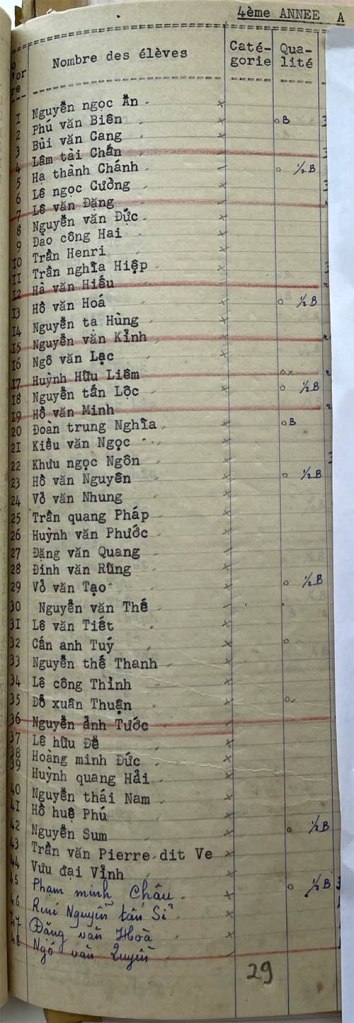 4ème ANNEE A
Nombre des élèves Caté- Qua-
gorie lité
1 Nguyễn ngọc Ẩn
2 Phú văn Biên oB
3 Bùi văn Cang
4 Lâm tài Chấn
5 Hà thành Chánh o ½B
6 Lê ngọc Cưởng
7 Lê văn Đặng
8 Nguyễn văn Đức
9 Đào công Hai
10 Trần Henri
11 Trần nghĩa Hiệp
12 Hà văn Hiếu
13 Hồ văn Hoá o ½B
14 Nguyễn ta Hùng
15 Nguyễn văn Kỉnh
16 Ngô văn Lạc
17 Huỳnh Hữu Liêm ox
18 Nguyễn tấn Lộc o ½B
19 Hồ văn Minh
20 Đoàn trung Nghĩa oB
21 Kiều văn Ngọc
22 Khưu ngọc Ngôn
23 Hồ văn Nguyên o ½B
24 Võ văn Nhung
25 Trần quang Pháp
26 Huỳnh văn Phước
27 Đặng văn Quang
28 Đinh văn Rũng
29 Võ văn Tạo o ½B
30 Nguyễn văn Thế
31 Lê văn Tiết
32 Cẩn anh Tuý o
33 Nguyễn thế Thanh
34 Lê công Thỉnh
35 Đỗ xuân Thuận o
36 Nguyễn ảnh Tước
37 Lê hữu Đề
38 Hoàng minh Đức
39 Huỳnh quang Hải
40 Nguyễn thái Nam
41 Hồ huệ Phú
42 Nguyễn Sum o ½B
43 Trần văn Pierre dit Ve
44 Vưu đại Vỉnh
45 Phạm minh Châu o ½B
46 René Nguyễn tấn Sĩ
47 Đặng văn Hoà
48 Ngô văn Luyến
29